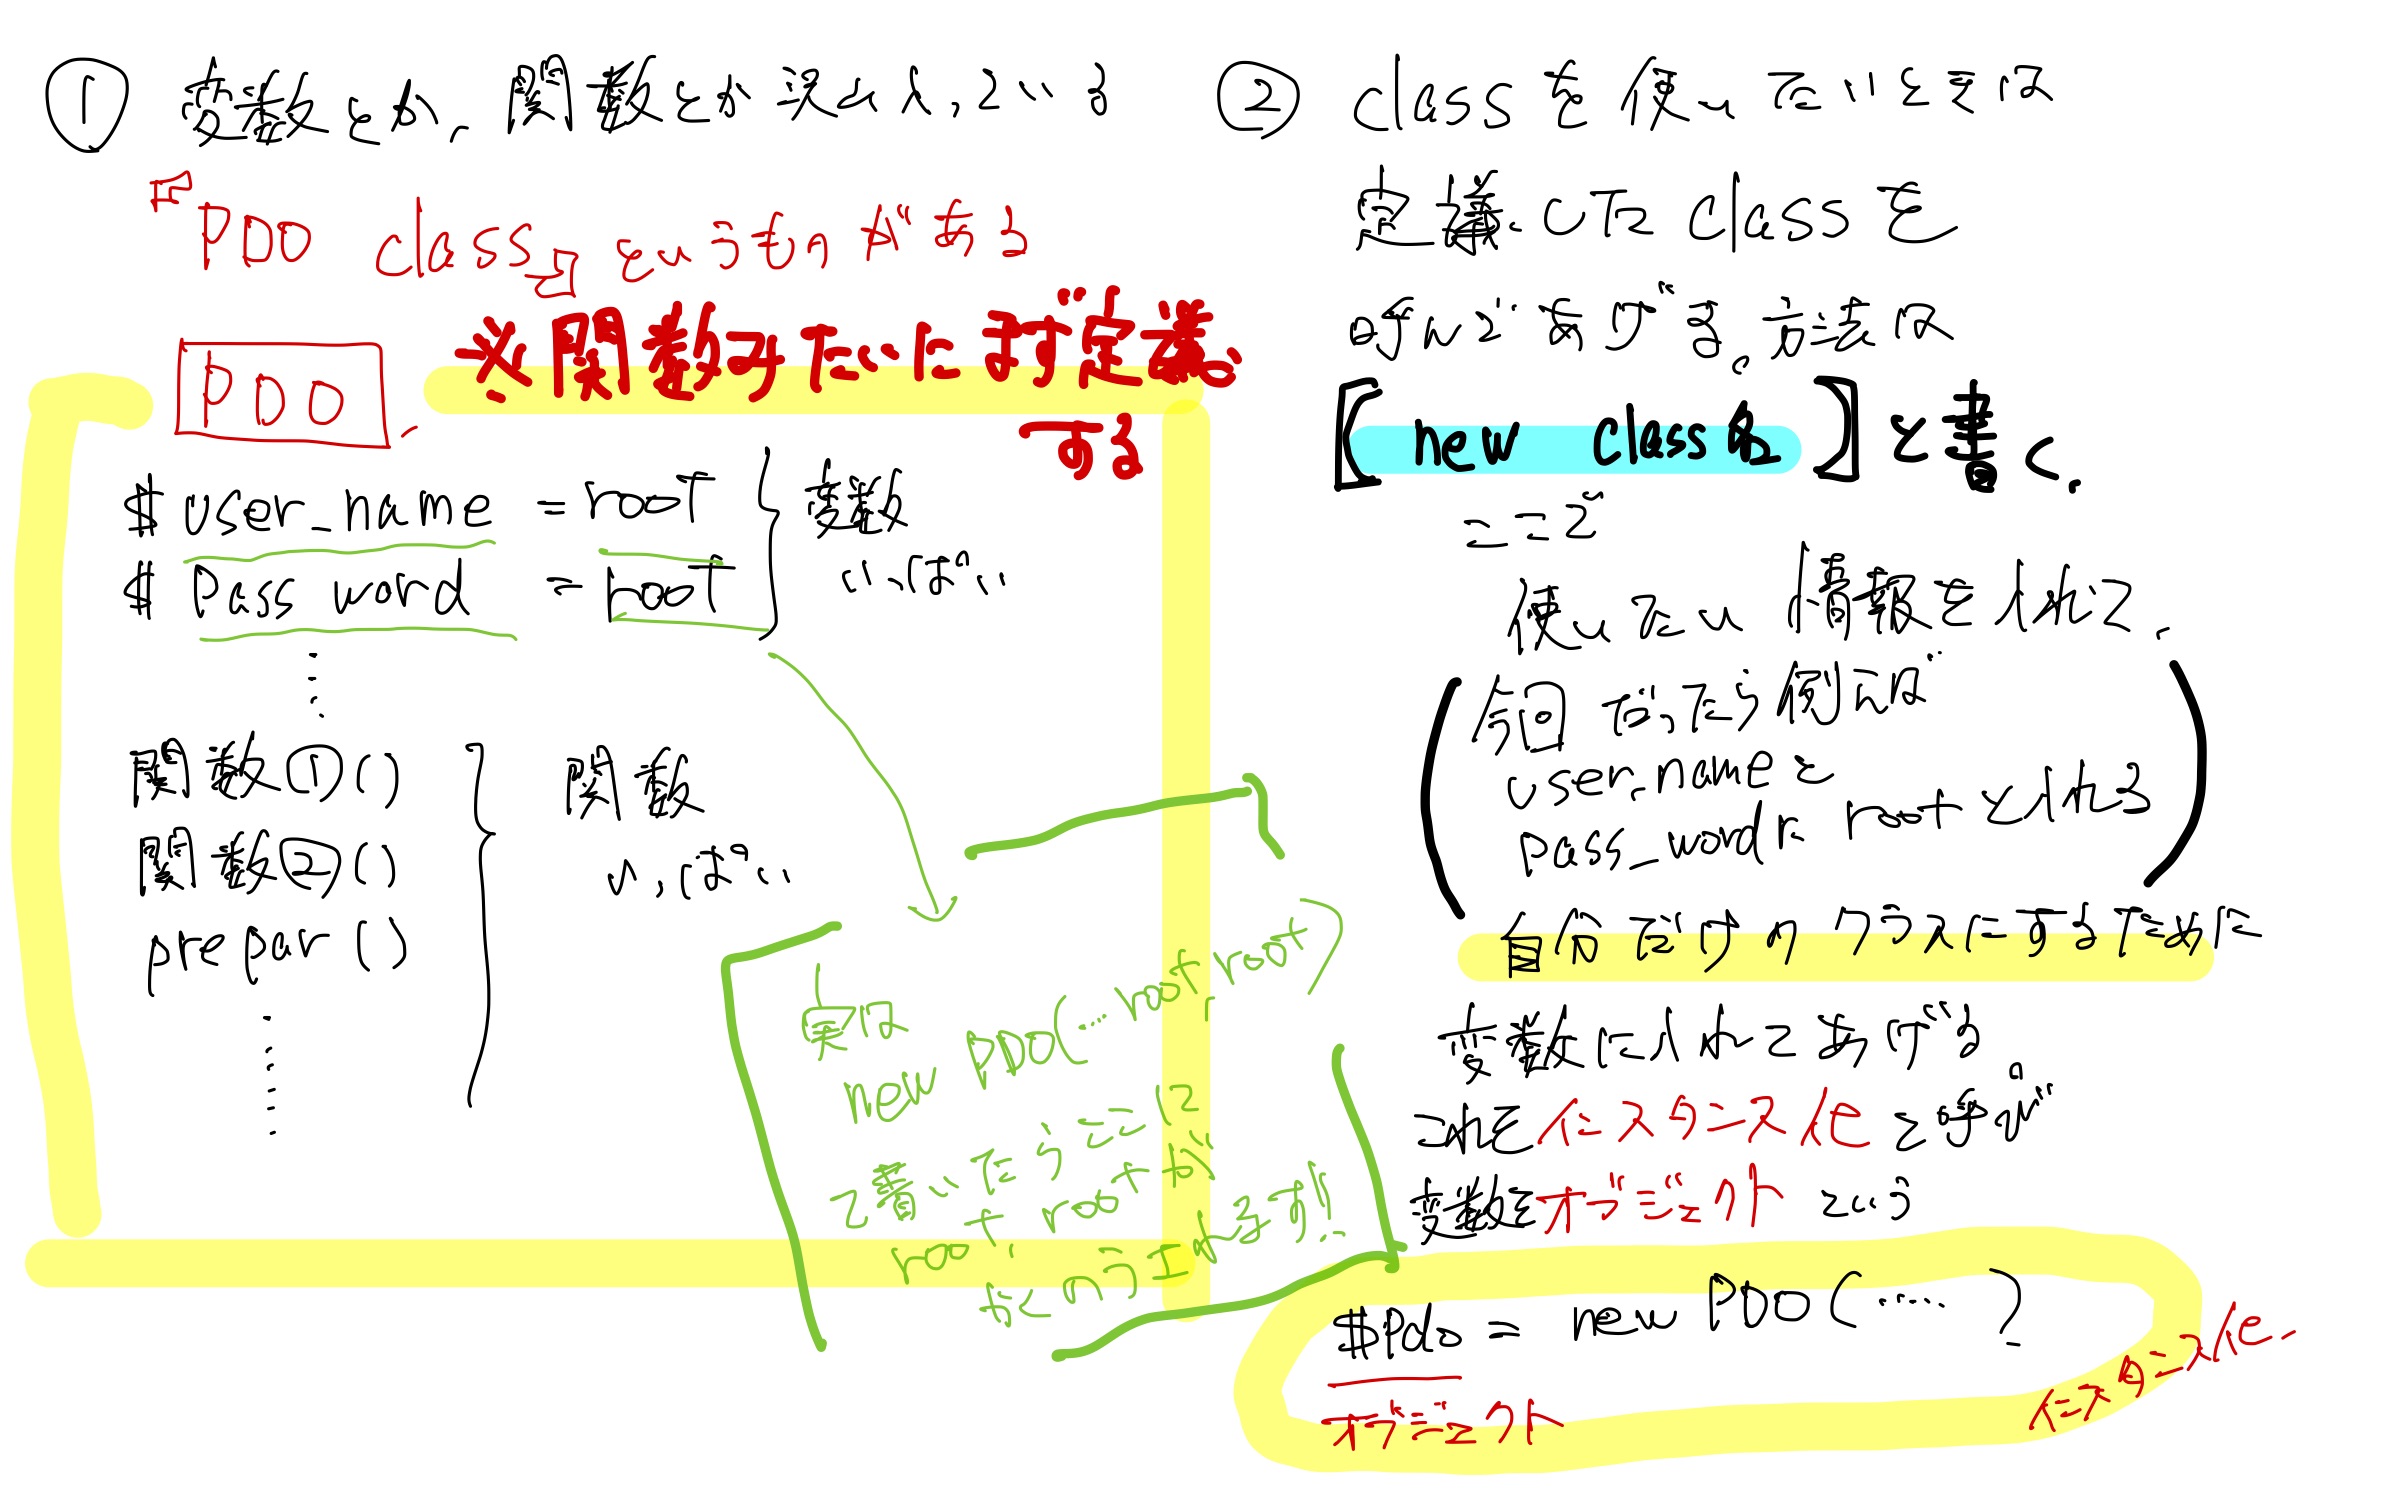 ① 変数とか、関数とか沢山入っている
『PDO class』というものがある
※関数みたいにまず定義
する
PDO
$ user_name = root
$ Pass word = root
変数
いっぱい
関数①()
関数②()
prepar()
関数
いっぱい
実は
new PDO(…root, root)
て書いたらここに
root, rootが
② classを使いたいときは
定義したclassを
呼んであげる。方法は
【new class名】と書く。
ここで
使いたい情報を入れて、
(今回だったら例えば
user_nameと
pass_wordに rootと入れる)
自分だけのクラスにするために
変数に入れてあげる
これをインスタンス化と呼ぶ
変数をオブジェクトという
$Pdo = new PDO(……)
オブジェクト
インスタンス化